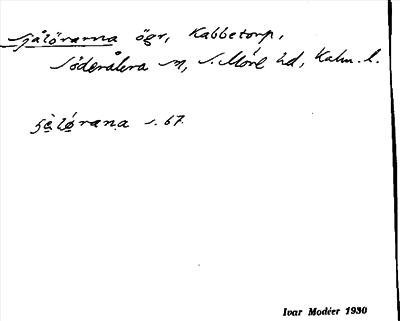 Själörarna ögr, Kabbetorp,
Söderåkra sn, S. Möre hd, Kalm. l.
s. 67.
Ivar Modéer 1930